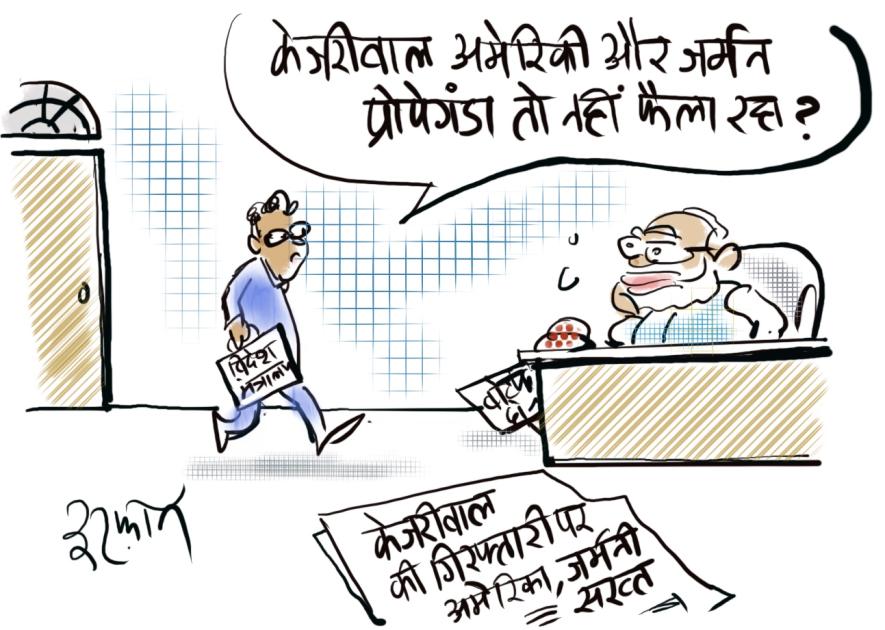 केजरीवाल अमेरिकी और जर्मन
प्रोपेगंडा तो नहीं फैला रहा?
विदेश
मंत्रालय
इरफ़ान
केजरीवाल
की गिरफ्तारी पर
अमेरिका, जर्मनी
सख्त